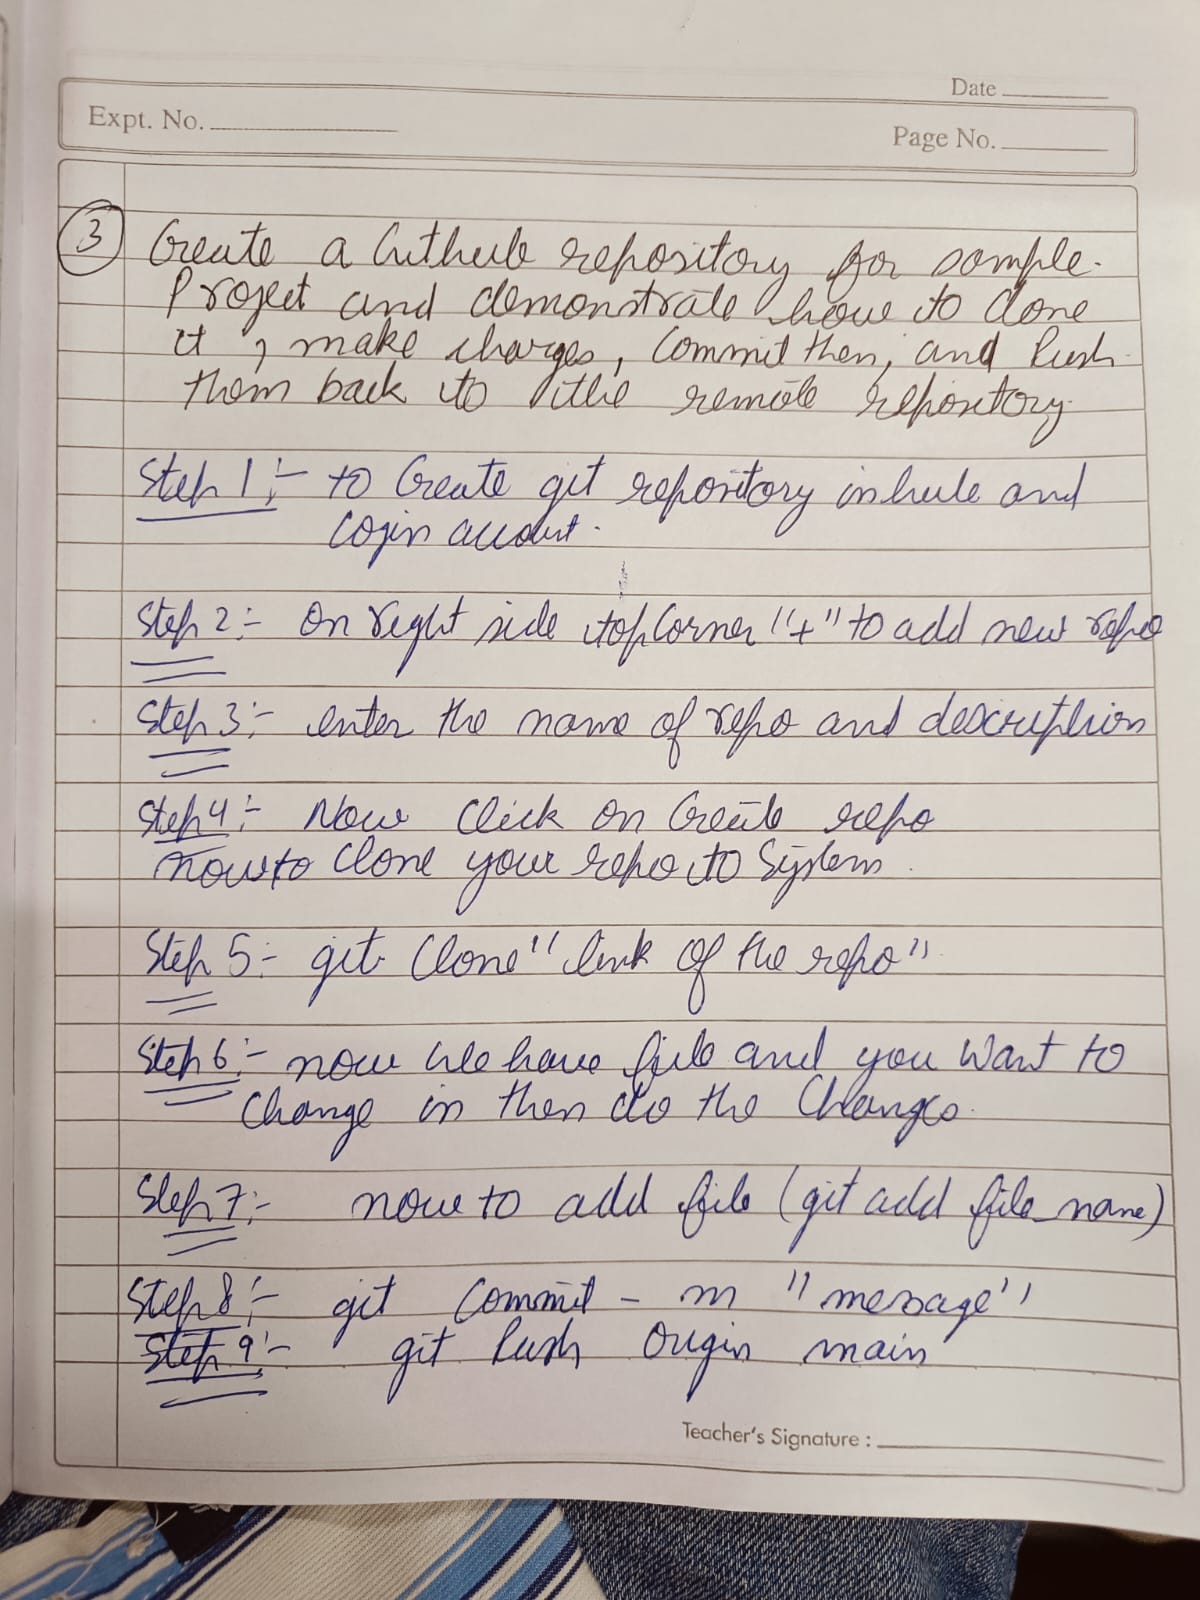 Date
Expt. No.
Page No.
3 Create a Github repository for sample
Project and demonstrate how to clone
it, make charges, Commit then, and Push
them back to the remote repository.
Step 1:- to Create git repository in hub and
login account.
Step 2:- On right side top Corner "+" to add new repo
Step 3:- enter the name of repo and description
Step 4:- Now Click on Create repo
now to Clone your repo to System.
Step 5:- git Clone "link of the repo"
Step 6:- now we have file and you Want to
Change in then do the Changes.
Step 7:- now to add file (git add file_name)
Step 8:- git Commit - m "message"
Step 9:- git Push Origin main
Teacher's Signature :